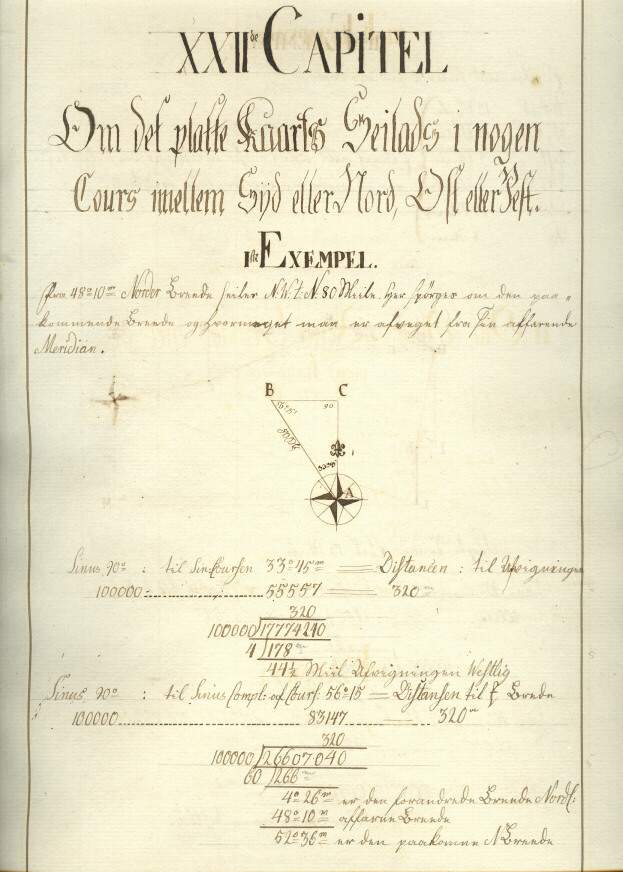 XXIIde CAPITEL
Om det platte Kaarts Seilads i nogen
Cours imellem Syd eller Nord, Ost eller Vest.
1ste EXEMPEL.
Fra 48° 10m Norder Breede seiler N.W.t.N. 80 Miile. Her spörges om den paa-
kommende Breede og hvormeget man er afveget fra sin affarende
Meridian.
B C
56°15' 90
80
33°45'
A
Sinus 90° : til Sin: Coursen 33°45m = Distancen : til Afvigningen
100000 55557 320m
320
100000/17774240
4/178m
44½ Miil Afvigningen Westlig
Sinus 90° : til Sinus Compl: af Cours: 56°15 = Distansen til Brede
100000 83147 320m
320
100000/26607040
60/266m
4° 26m er den forandrede Breede Nordl:
48° 10m affarne Breede
52° 36m er den paakomne N Breede